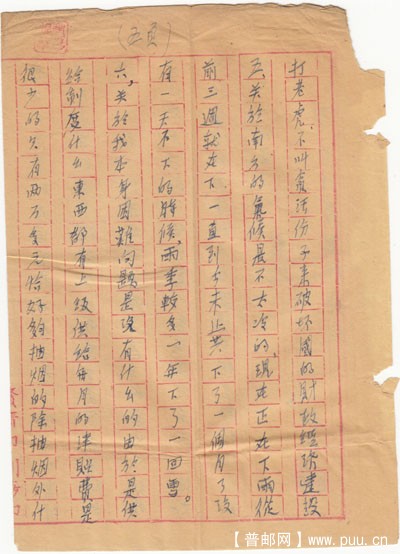 (五页)
打老虎，不叫贪污份子来破坏国的财政经济建设
五、关於南方的气候是不大冷的，现在正在下雨，从
前三週就在下一直到方未止共下了一個月了没
有一天不下的時候，雨季較多一年下了一回雪。
六，关於我本身困难问题是没有什么的由於是供
给制度什么東西都有上级供给每月的津贴費是
很少的只有两万多元恰好夠抽烟的除抽烟外什
【普邮网】www.puu.cn